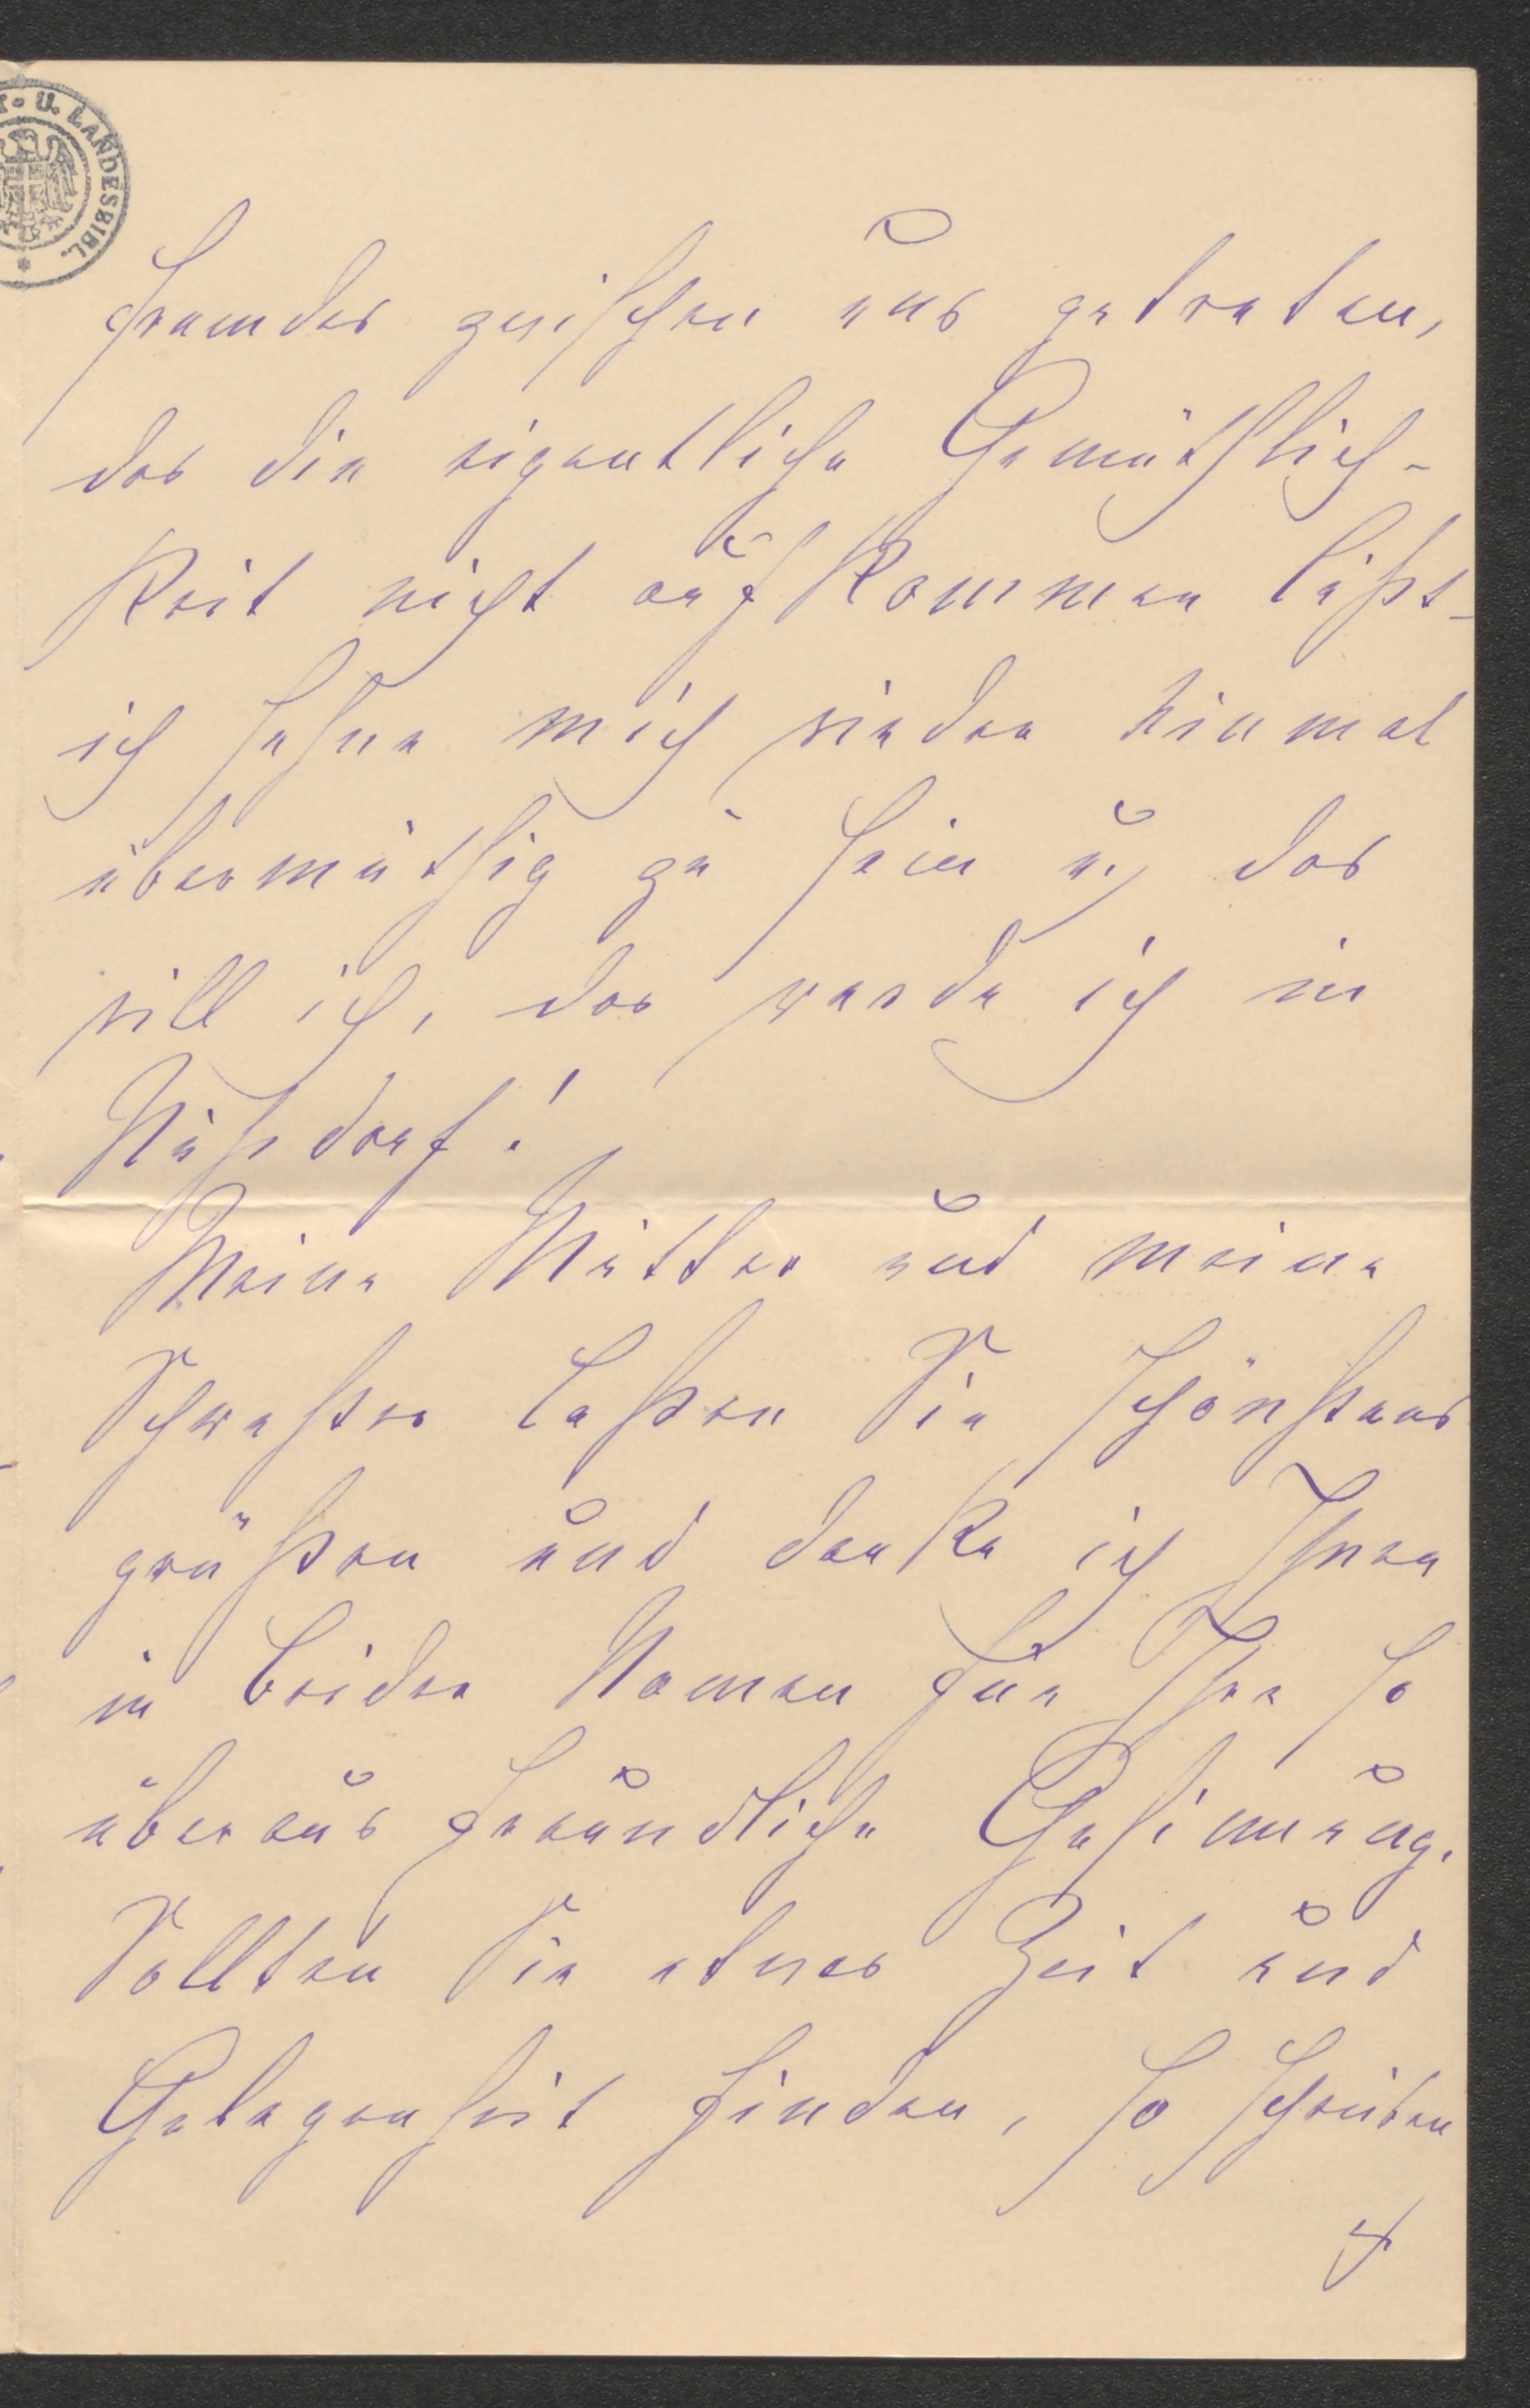 U. LANDESBIBL.
fremdes zwischen uns getreten,
das die eigentliche Gemüthlich-
keit nicht aufkommen läßt-
ich sehne mich wieder einmal
übermüthig zu sein u. das
will ich, das werde ich in
Nußdorf!
Meine Mutter und meine
Schwester laßen Sie schönstens
grüßen und danke ich Ihnen
in beider Namen für Ihre so
überaus freundliche Gesinnung.
Sollten Sie etwas Zeit und
Gelegenheit finden, so schreiben